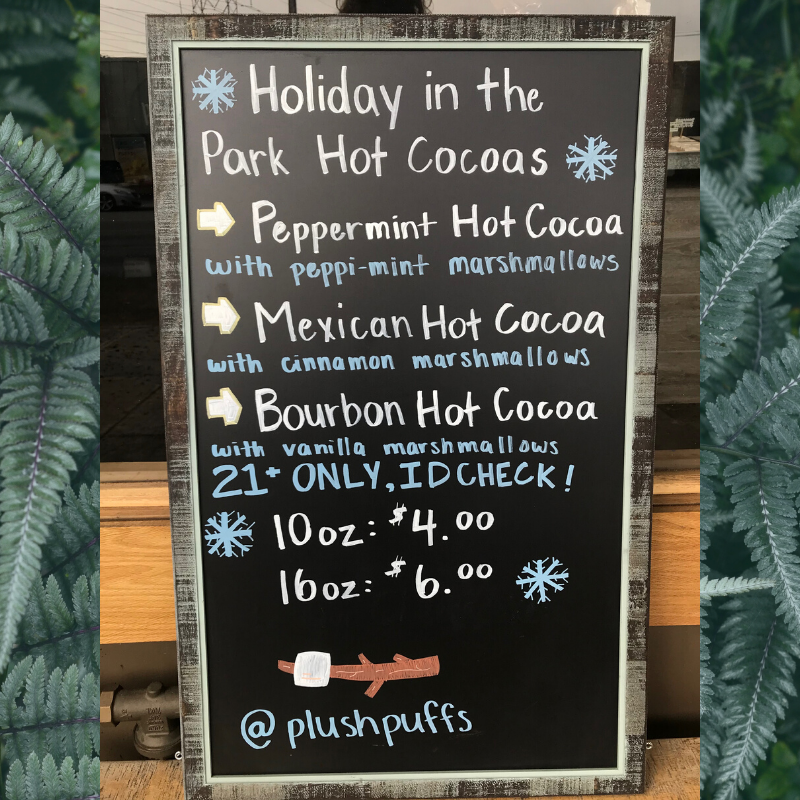 Holiday in the
Park Hot Cocoas
Peppermint Hot Cocoa
with peppi-mint marshmallows
Mexican Hot Cocoa
with cinnamon marshmallows
Bourbon Hot Cocoa
with vanilla marshmallows
21+ ONLY, ID CHECK!
10oz: $4.00
16oz: $6.00
@plushpuffs